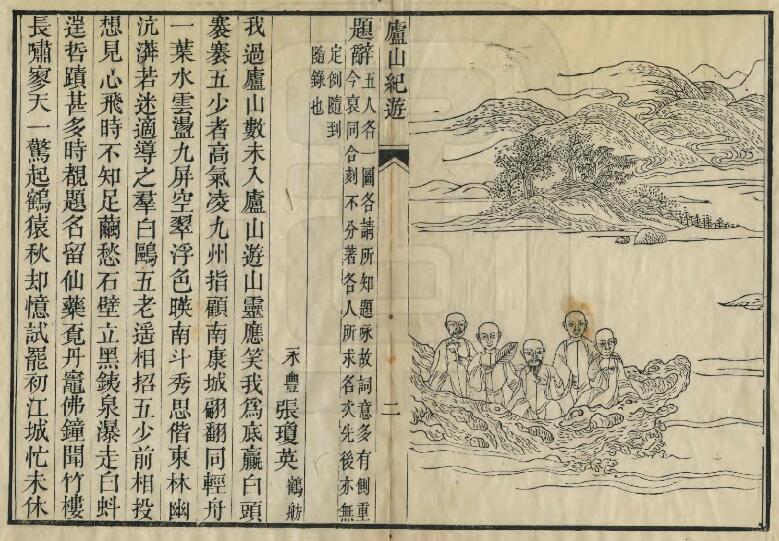 廬山紀遊
二
題辭
五人各一圖各請所知題咏故詞意多有側重
今裒同合刻不分著各人所求名次先後亦無
定例隨到
隨錄也
永豐 張瓊英 鶴舫
我過廬山數未入廬山遊山靈應笑我爲底贏白頭
褰褰五少者高氣凌九州指顧南康城翩翩同輕舟
一葉水雲盪九屏空翠浮色暎南斗秀思偕東林幽
沆漭若迷適導之羣白鷗五老遥相招五少前相投
想見心飛時不知足繭愁石壁立黑鉄泉瀑走白蚪
逹哲蹟甚多時覩題名留仙藥覔丹竈佛鐘聞竹樓
長嘯寥天一驚起鶴猿秋却憶試罷初江城忙未休